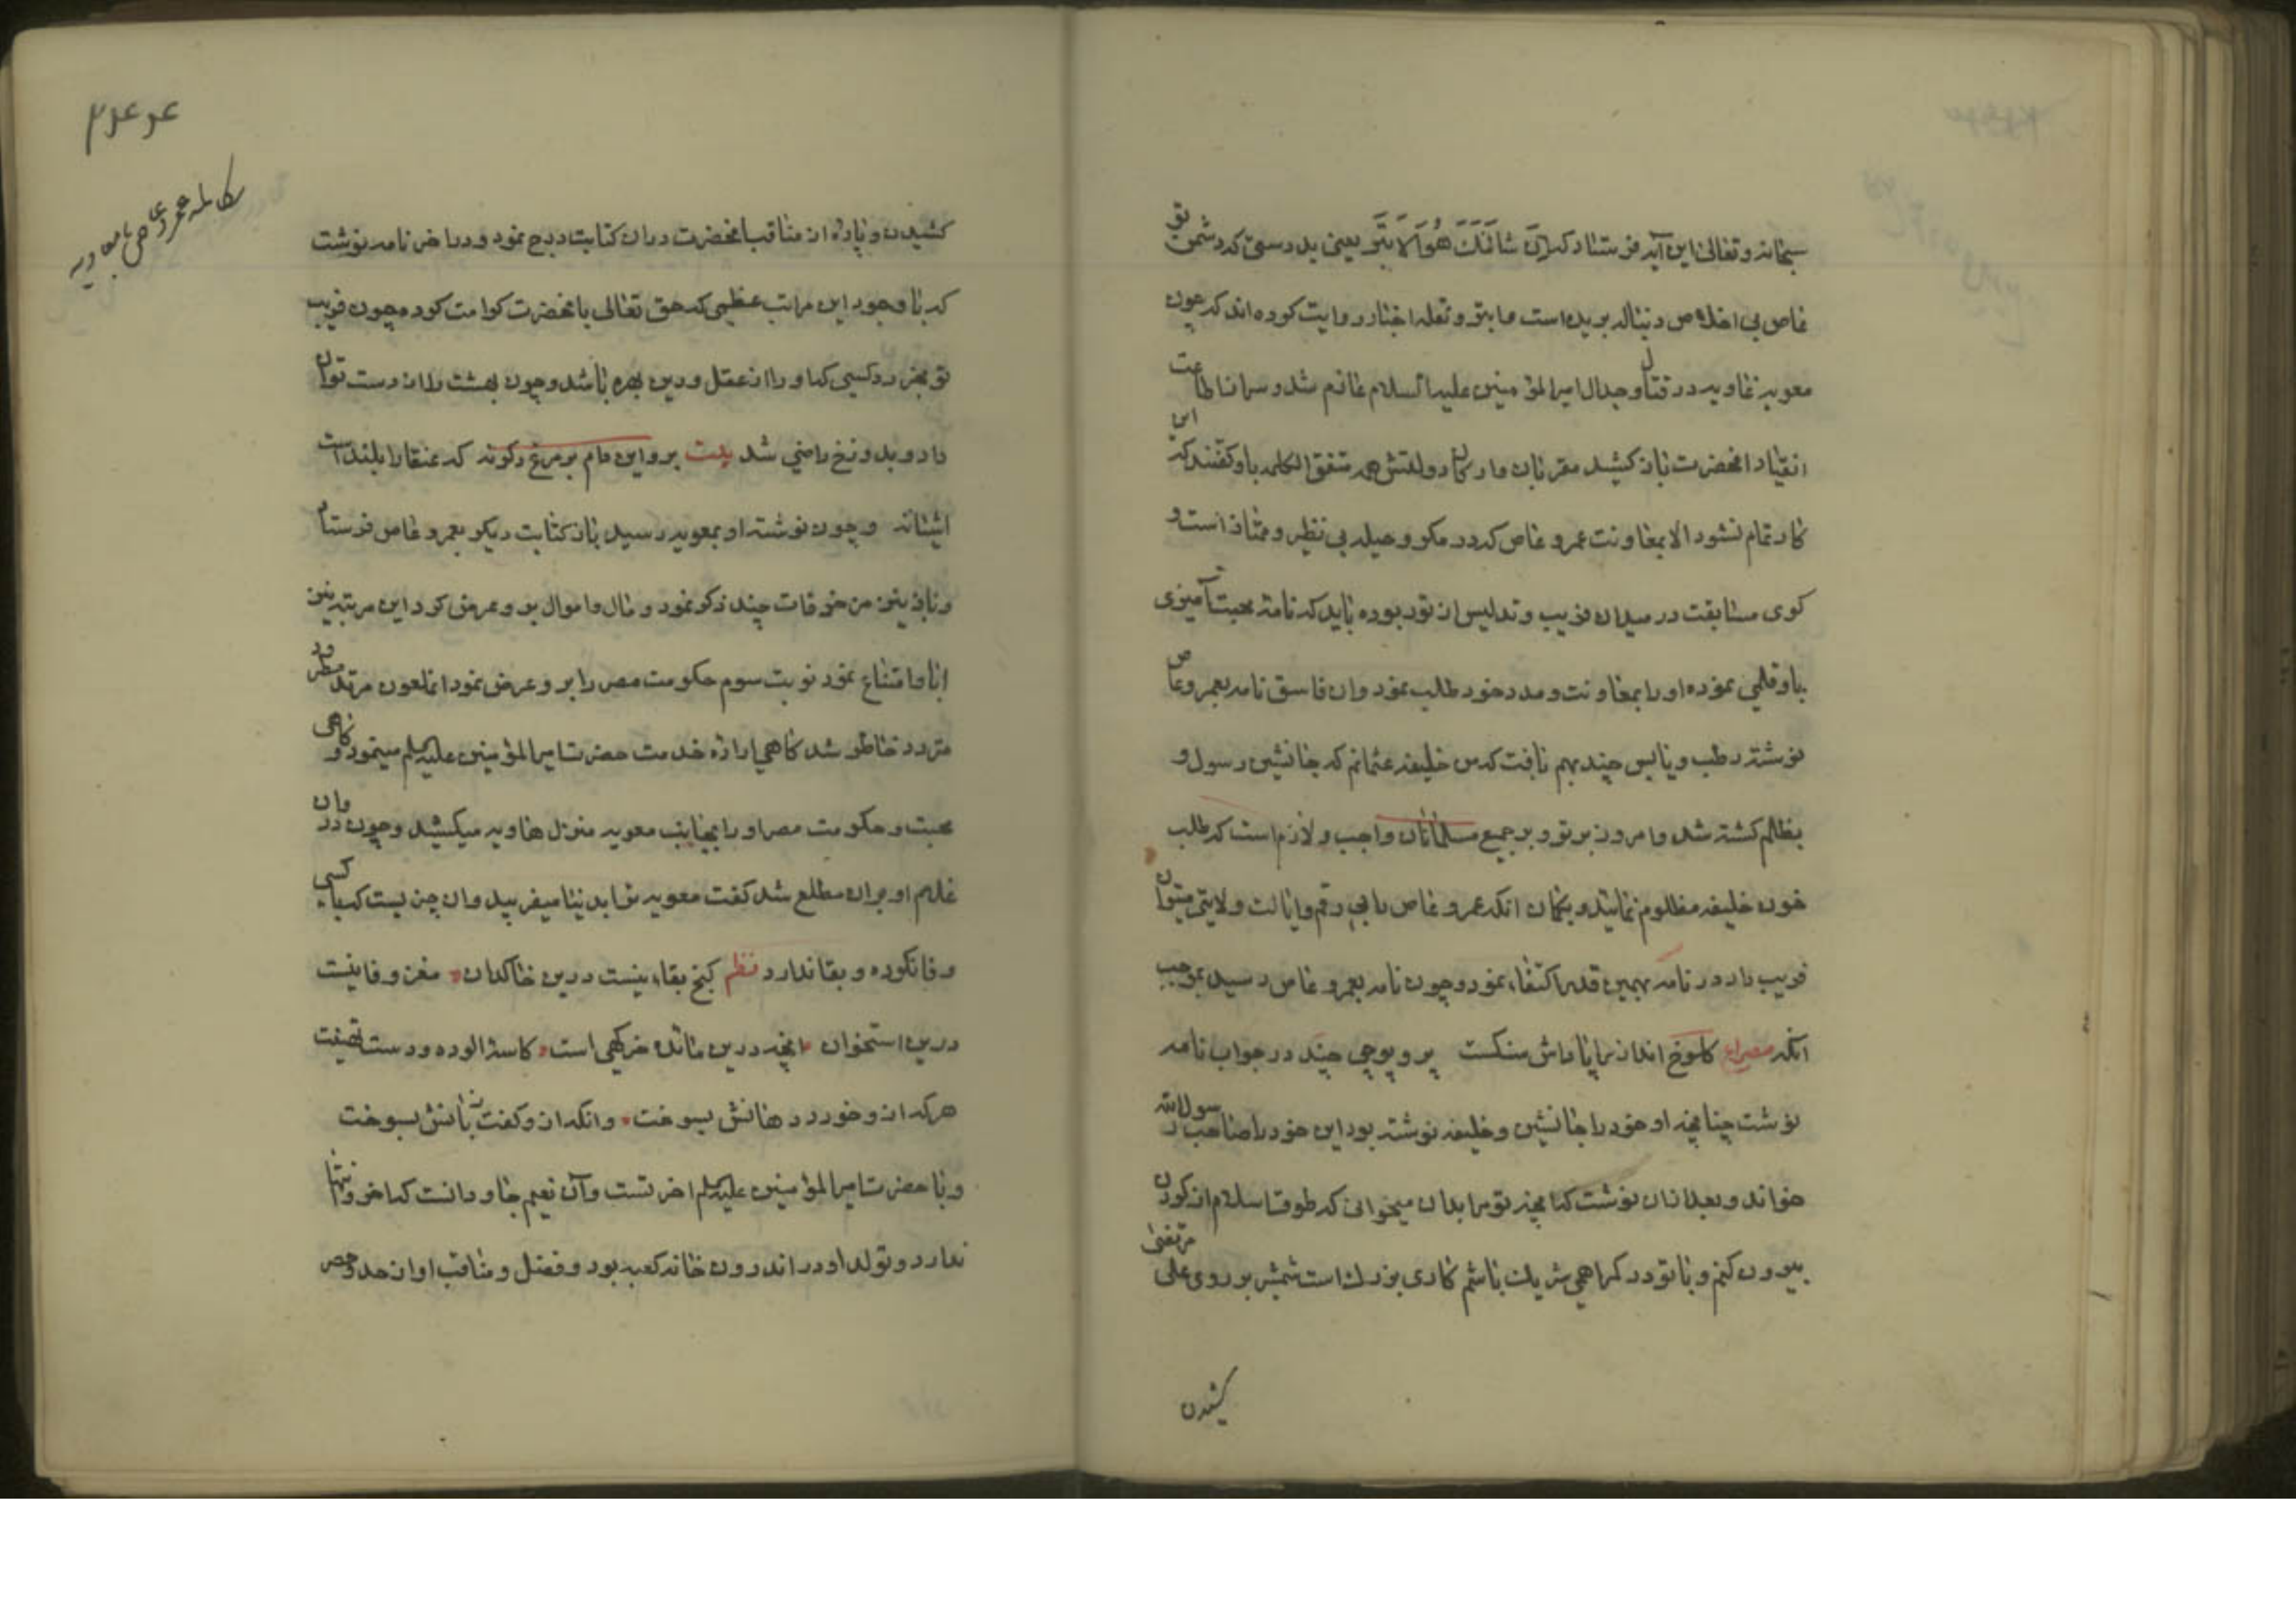 سبحانه وتعالی این آیه فرستاد که اِنَّ شَانَئَكَ هُوَ الاَبتَر یعنی بدرستی که دشمن تو
عاص بی اخلاص دنباله بریده است و ابتر و نقله اخبار روایت کرده اند که چون
معویه غاویه در قتال و جدال امیر المؤمنین علیه السلام عازم شد و سر از اطاعت
انقیاد انحضرت باز کشید مقربان و ارکان دولتش همه متفق الکلمه باو گفتند که این
کار تمام نشود الا بمعاونت عمرو عاص که در مکر و حیله بی نظیر و ممتاز است و
کوی مسابقت در میدان فریب و تدلیس از تو ربوده باید که نامهٔ محبت آمیزی
باو قلمی نموده او را بمعاونت و مدد خود طلب نمود وان فاسق نامه بعمرو عاص
نوشته رطب و یابس چند بهم بافت که من خلیفه عثمانم که جانشین رسول و
بظلم کشته شد و امروز بر تو و بر جمیع مسلمانان واجب و لازم است که طلب
خون خلیفه مظلوم نمایند و بگمان انکه عمرو عاص را بی رقم و ایالت ولایتی میتوان
فریب داد در نامه بهمین قدر اکتفاء نمود و چون نامه بعمرو عاص رسید بموجب
آنکه مصراع کلوخ انداز را پاداش سنکست پر و پوچی چند در جواب نامه
نوشت چنانچه او خود را جانشین و خلیفه نوشته بود این خود را صاحب رسول الله
خواند و بعد ازان نوشت که انچه تو مرا بدان میخوانی که طوق اسلام از کردن
بیرون کنم و با تو در کمراهی شریک باشم کاری بزرک است شمشیر بر روی علی مرتضی
کشیدن
عرعر۳
نامه عمرو عاص بمعاویه
کشیدن و پارهٔ از مناقب انحضرت دران کتابت درج نمود و در اخر نامه نوشت
که با وجود این مراتب عظیمی که حق تعالی بانحضرت کرامت کرده چون فریب
تو بخورد کسی که او را از عقل و دین بهره باشد و چون بهشت را از دست توان
داد و بدوزخ راضی شد بیت برو این دام بر مرغ دکر نه که عنقا را بلند است
اشیانه و چون نوشته او بمعویه رسید باز کتابت دیکر بعمرو عاص فرستاد
و باز بنیز مزخرفات چند ذکر نمود و مال و اموال برو عرض کرد این مرتبه نیز
ابا و امتناع نمود نوبت سوم حکومت مصر را برو عرض نمود انملعون مرتد مطرود
متردد خاطر شد کاهی اراده خدمت حضرت امیر المؤمنین علیه السلم مینمود و کاهی
محبت حکومت مصر او را بجانب معویه منزل هاویه میکشید و چون در وان
غلام او بران مطلع شد کفت معویه ترا بدنیا میفریبد وان چیزیست که با کسی
وفا نکرده و بقا ندارد نظم کنج بقاء نیست درین خاکدان مغز وفا نیست
درین استخوان انچه درین مائده خرکهی است کاسه الوده و دست تهیست
هر که ازو خورد دهانش بسوخت وانکه ازو کفت زبانش بسوخت
و با حضرت امیر المؤمنین علیه السلم اخرتست وآن نعیم جاودانست که اخر و انتها
ندارد و تولد او در اندرون خانه کعبه بود و فضل و مناقب او از حد و حصر